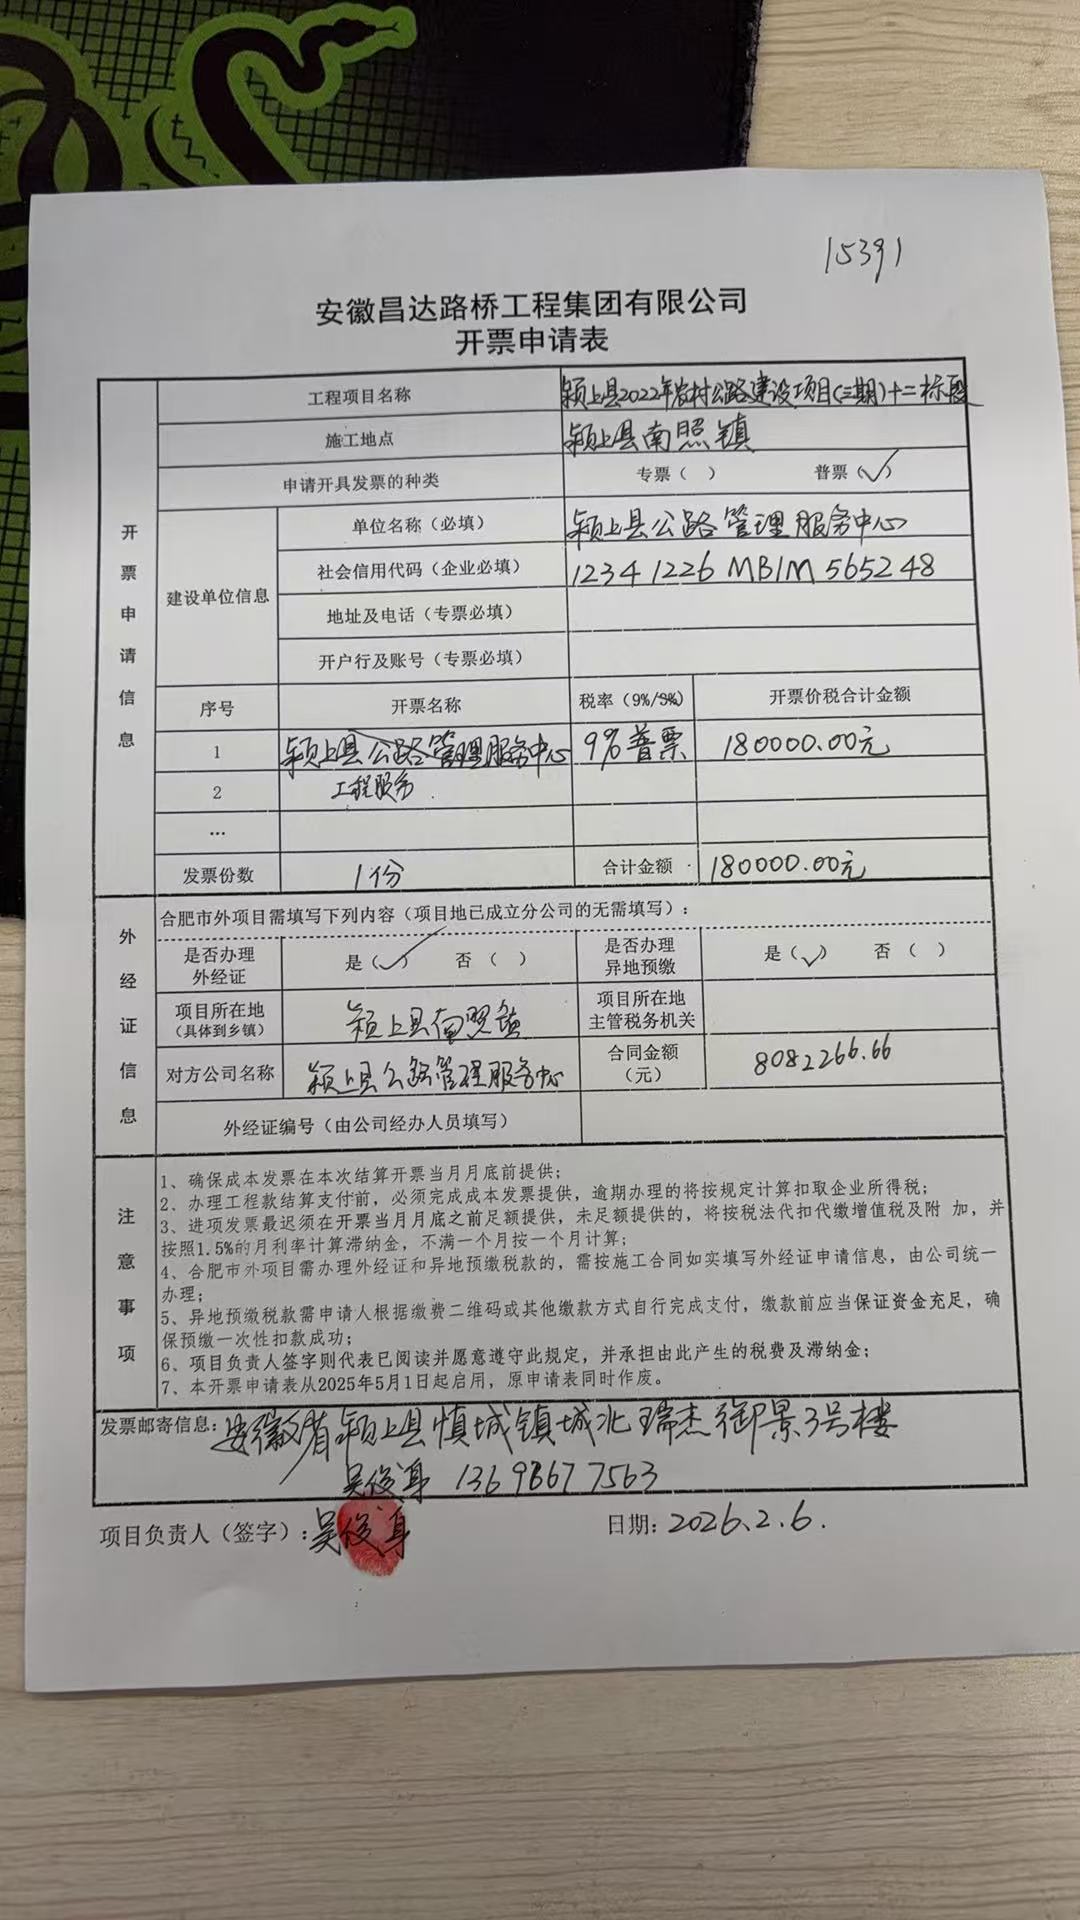 15391
安徽昌达路桥工程集团有限公司
开票申请表
开票申请信息
工程项目名称 颍上县2022年农村公路建设项目(三期)十二标段
施工地点 颍上县南照镇
申请开具发票的种类 专票（ ） 普票（✓）
建设单位信息
单位名称（必填） 颍上县公路管理服务中心
社会信用代码（企业必填） 12341226MB1M565248
地址及电话（专票必填）
开户行及账号（专票必填）
序号 开票名称 税率（9%/3%） 开票价税合计金额
1 颍上县公路管理服务中心 9%普票 180000.00元
2 工程服务
...
发票份数 1份 合计金额 180000.00元
外经证信息
合肥市外项目需填写下列内容（项目地已成立分公司的无需填写）：
是否办理外经证 是（✓） 否（ ） 是否办理异地预缴 是（✓） 否（ ）
项目所在地（具体到乡镇） 颍上县南照镇 项目所在地主管税务机关
对方公司名称 颍上县公路管理服务中心 合同金额（元） 8082266.66
外经证编号（由公司经办人员填写）
注意事项
1、确保成本发票在本次结算开票当月月底前提供；
2、办理工程款结算支付前，必须完成成本发票提供，逾期办理的将按规定计算扣取企业所得税；
3、进项发票最迟须在开票当月月底之前足额提供，未足额提供的，将按税法代扣代缴增值税及附 加，并
按照1.5%的月利率计算滞纳金，不满一个月按一个月计算；
4、合肥市外项目需办理外经证和异地预缴税款的，需按施工合同如实填写外经证申请信息，由公司统一
办理；
5、异地预缴税款需申请人根据缴费二维码或其他缴款方式自行完成支付，缴款前应当保证资金充足，确
保预缴一次性扣款成功；
6、项目负责人签字则代表已阅读并愿意遵守此规定，并承担由此产生的税费及滞纳金；
7、本开票申请表从2025年5月1日起启用，原申请表同时作废。
发票邮寄信息：安徽省颍上县慎城镇城北瑞杰御景3号楼
吴俊 13698677563
项目负责人（签字）：吴俊 日期：2026.2.6.